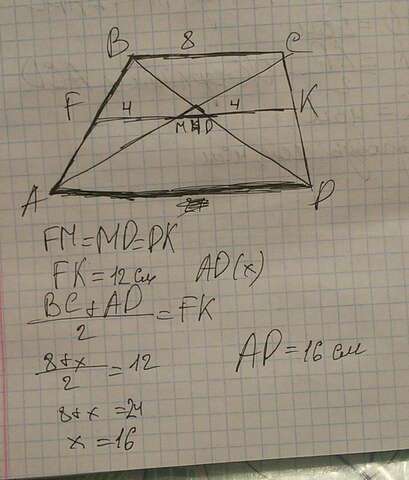 B 8 C
F 4 4 K
M D
A D
FM=MD=DK
FK=12см AD(x)
BC+AD
2
=FK
8+x
2
=12
AD=16 см
8+x=24
x=16